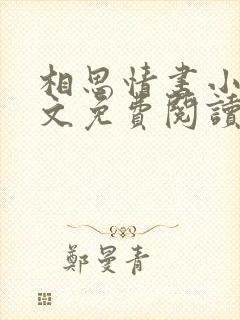 相思情書小
文免費閱讀
鄭曼青